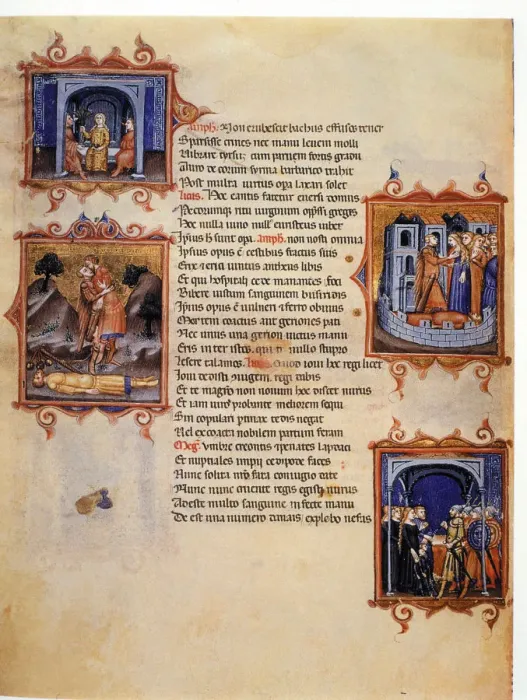 Amph. Non erubescit bachus effusos tener
Sparsisse crines nec manu leuem molli
Uibrare tyrsum cum parum forti gradu
Auro decorum sirma barbarico trahit
Post multa uirtus opa laxari solet
licus. Hoc fatetur euersi domus
Pecorumque ritu uirginum oppssi greges
Hoc nulla iuno null iubet
Ipsius h sunt opa. Amph. non nosti omnia
Ipsius opus ē cestibus fractus suis
Erix uinctus antheus libis
Et qui hospitali cede manantes foci
Bibere iustum sanguinem busiridis
Ipsius opus ē uulneri ferro obuius
Mortem coactus pati
Nec unus una gerion uictus manu
Eris inter istos qui nullo stupro
lesere talamos. Quod ioui hoc regi licet
Ioui dedisti 9iugem regi dabis
Et te magro non nouum hoc discet nurus
Et iam uiro meliorem sequi
Sin copulari ptinax tedis negat
Uel ex coacta nobilem partum feram
Meg. Umbre creontis penates
Et nuptiales impii edipode faces
Nunc solita nrō fata coniugio date
Nunc nunc cruente regis nurus
Adeste multo sanguine infecte manu
De est una numero explebo nefas